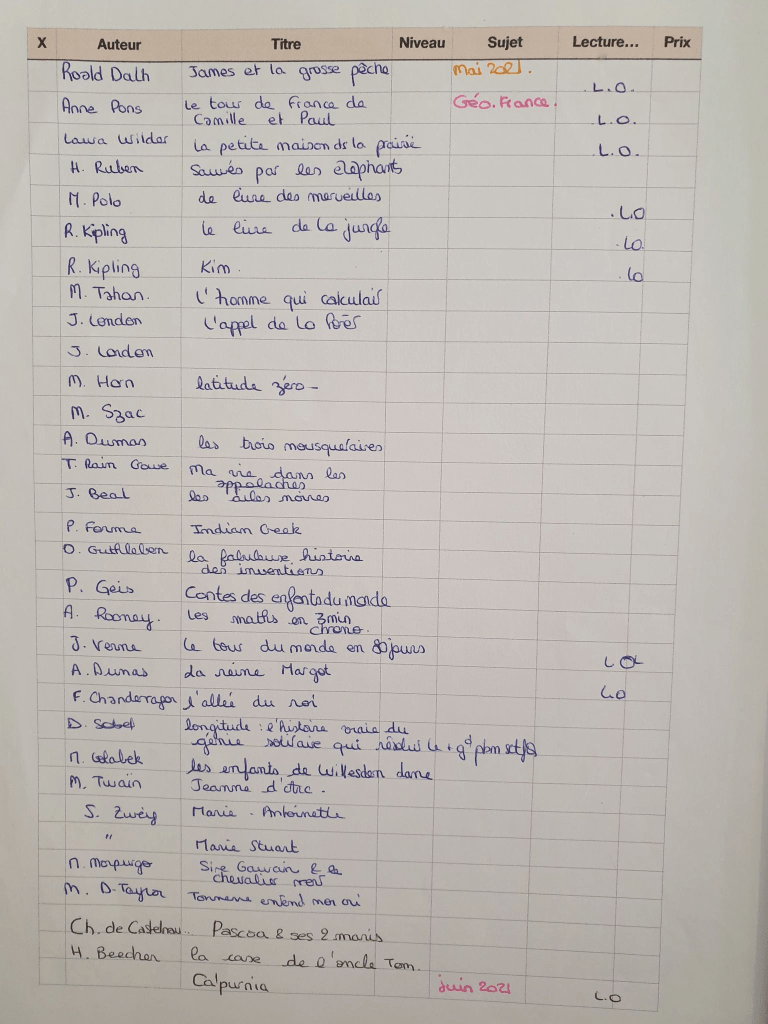 X Auteur Titre Niveau Sujet Lecture... Prix
Roald Dalh James et la grosse pêche Mai 2021. L.O.
Anne Pons Le tour de France de Géo. France.
Camille et Paul L.O.
Laura Wilder la petite maison ds la prairie L.O.
H. Ruben Sauvés par les éléphants
M. Polo de livre des merveilles .LO
R. Kipling le livre de la jungle .LO.
R. Kipling Kim. .LO
M. Tahan. L'homme qui calculait
J. London L'appel de la
J. London
M. Horn latitude zéro -
M. Szac
A. Dumas les trois mousquetaires
T. Rain Crowe Ma vie dans les
appalaches
J. Beal les ailes noires
P. Fromm Indian Creek
D. Guthleben la fabuleuse histoire
des inventions
P. Geis Contes des enfants du monde
A. Rooney. les maths en 3 min
chrono.
J. Verne Le tour du monde en 80 jours LO
A. Dumas La reine Margot
F. Chandernagor l'allée du roi LO
D. Sobel longitude : l'histoire vraie du
génie solitaire qui résolut le + gd pbm
M. Golabek les enfants de Willesden Lane
M. Twain Jeanne d'Arc.
S. Zweig Marie-Antoinette
" Marie Stuart
M. Morpurgo Sire Gawain & le
chevalier vert
M. D-Taylor Tonnerre entend mon cri
Ch. de Castelnau.. Pascoa & ses 2 maris
H. Beecher la case de l'oncle Tom.
Calpurnia juin 2021 L.O